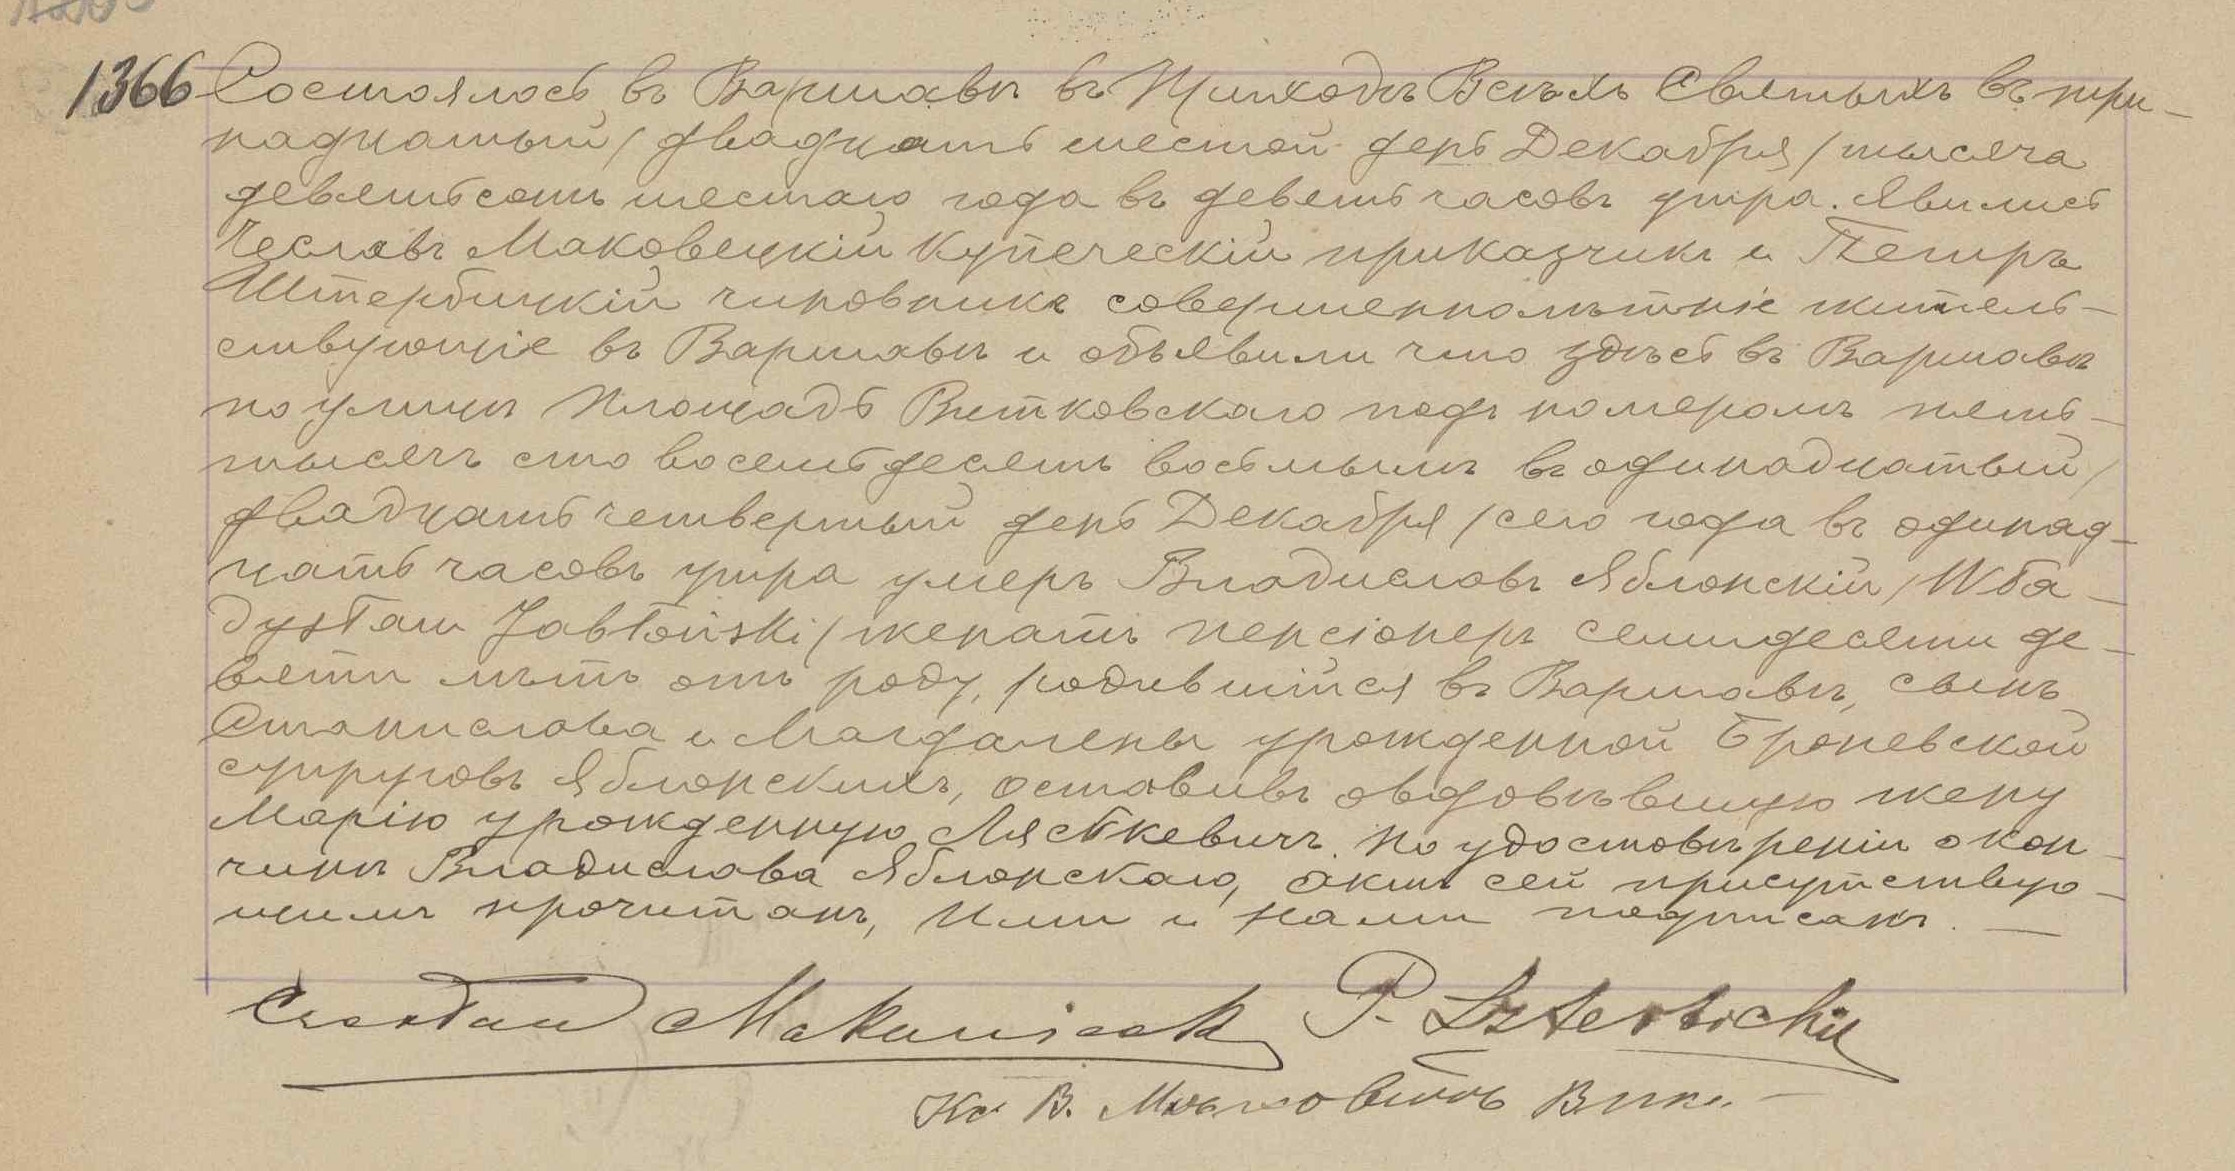 1366 Состоялось въ Варшавѣ въ Приходѣ Всѣхъ Святыхъ въ три-
надцатый / двадцать шестой день Декабря / тысяча
девятьсотъ шестаго года въ девять часовъ утра. Явились
Чеславъ Маковецкій купеческій приказчикъ и Петръ
Штербицкій чиновникъ совершеннолѣтніе житель-
ствующіе въ Варшавѣ и объявили что здѣсь въ Варшавѣ
по улицѣ Площадь Витковскаго подъ номеромъ пять
тысячъ сто восемьдесятъ восьмымъ въ одинадцатый /
двадцать четвертый день Декабря / сего года въ одинад-
цать часовъ утра умеръ Владиславъ Яблонскій / Wła-
dysław Jabłoński / женатъ пенсіонеръ семидесяти де-
вяти лѣтъ отъ роду, родившійся въ Варшавѣ, сынъ
Станислава и Магдалены урожденной Броневской
супруговъ Яблонскихъ, оставивъ овдовѣвшую жену
Марію урожденную Ляскевичъ. По удостовѣреніи о кон-
чинѣ Владислава Яблонскаго, актъ сей присутствую-
щимъ прочитанъ, Ими и Нами подписанъ. —
Czesław Makowiecki P. Szterbicki
Кс. В.